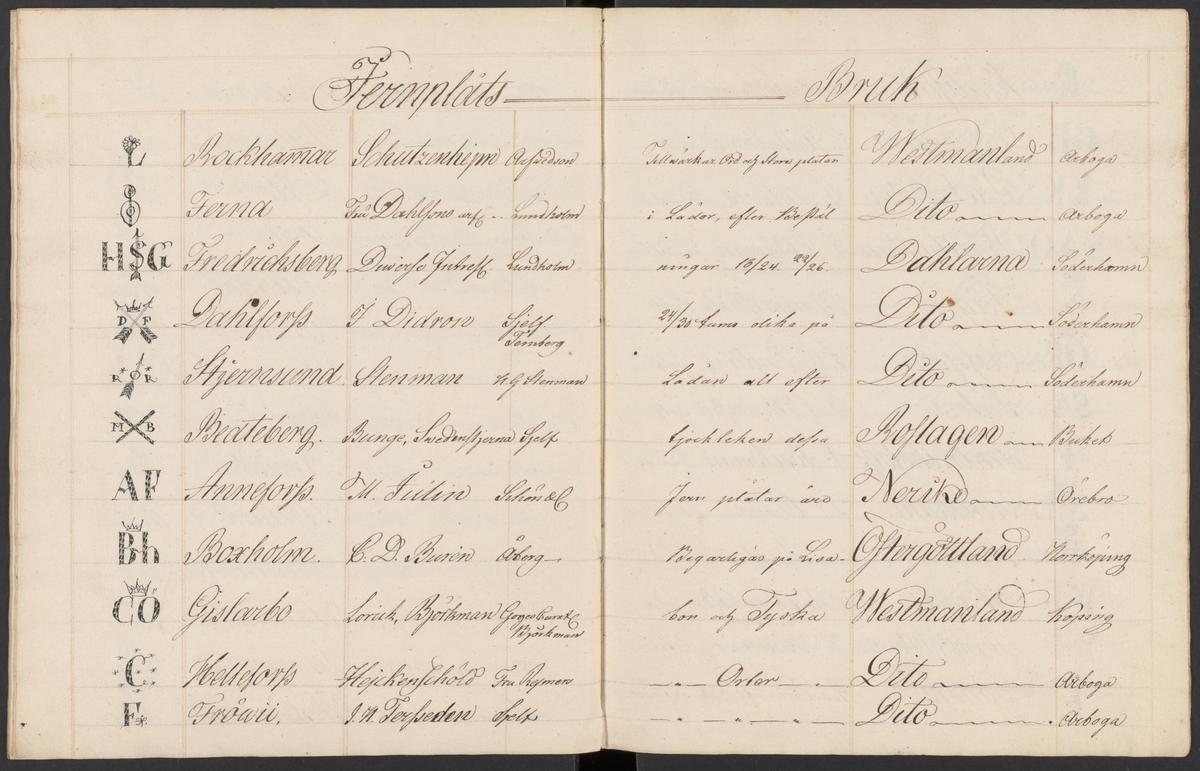 Jernplåts Bruk
L Rockhammar Schutzenheim Arfvedson Tillwärkar Ord och Store plåtar Westmanland Arboga
Ferna Fru Dahlsons arf .. Lundholm i Låder, efter Beställ Dito Arboga
HSG Fredrichsberg Diverse Intress Lundholm ningar 13/24. 22/26. Dahlarna Söderhamn
D F Dahlforss J Didron Sjelf Temberg 24/30 tums olika på Dito Söderhamn
R O R Stjernsund Stenman H G Stenman Lådan alt efter Dito Söderhamn
M B Beateberg. Bunge, Swedenstjerna Sjelf tjockleken dessa Roslagen Buket
AF Anneforss. M. Julin Schön & C Jern plåtar äro Nerike Örebro
Bh Boxholm. C. D. Burén Åberg Begärligas på Lisa- Östergöttland Norrköping
CÖ Gislarbo Lorick, Björkman Björkman bon och Tyska Westmanland Köping
C Hellefors Hejckenschöld Fru Rejmers Orter Dito Arboga
F Fröwii. J. H. Tersseden Sjelf Dito Arboga